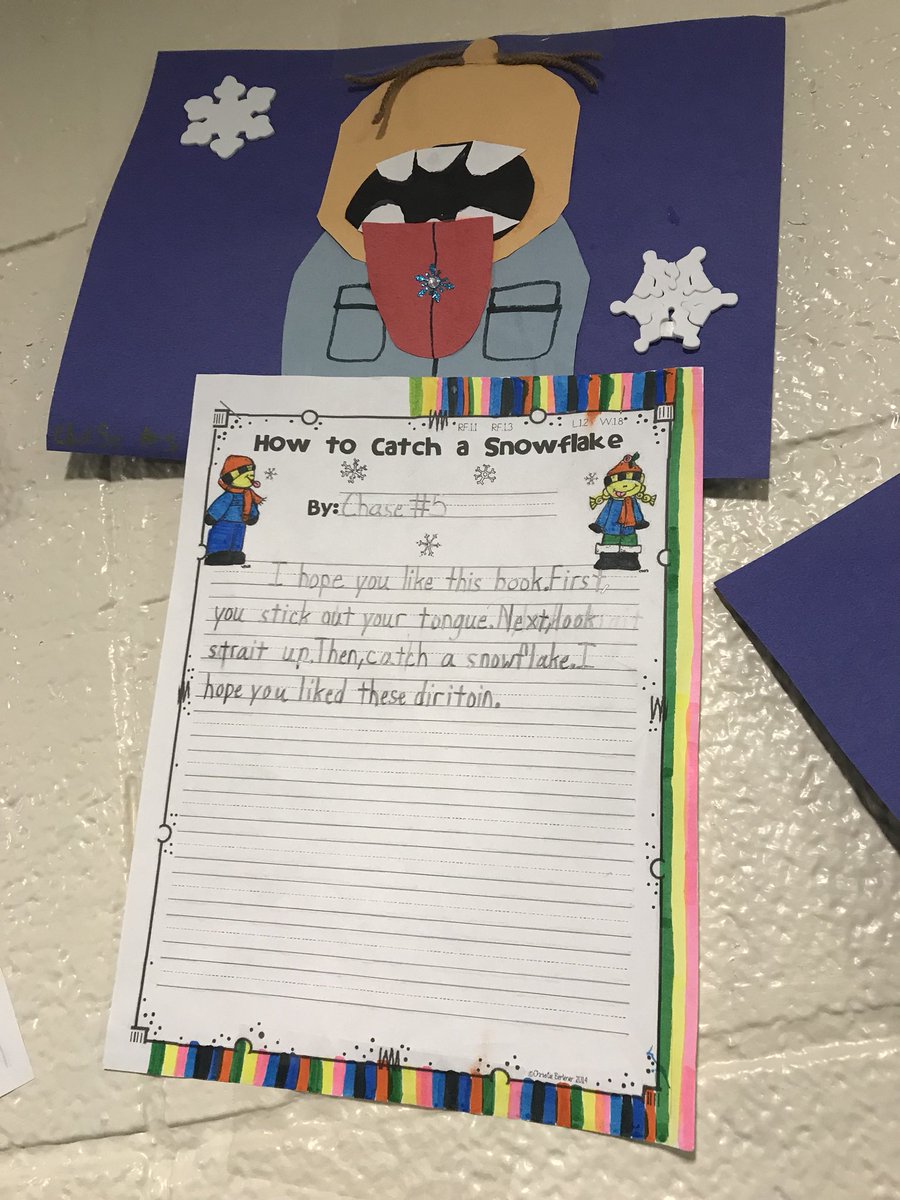 RF.1.1 RF.1.3 L.1.2 W.1.8
How to Catch a Snowflake
By: Chase #5
I hope you like this book. First,
you stick out your tongue. Next, look
strait up. Then, catch a snowflake. I
hope you liked these diritoin.
©Christie Berkner 2014